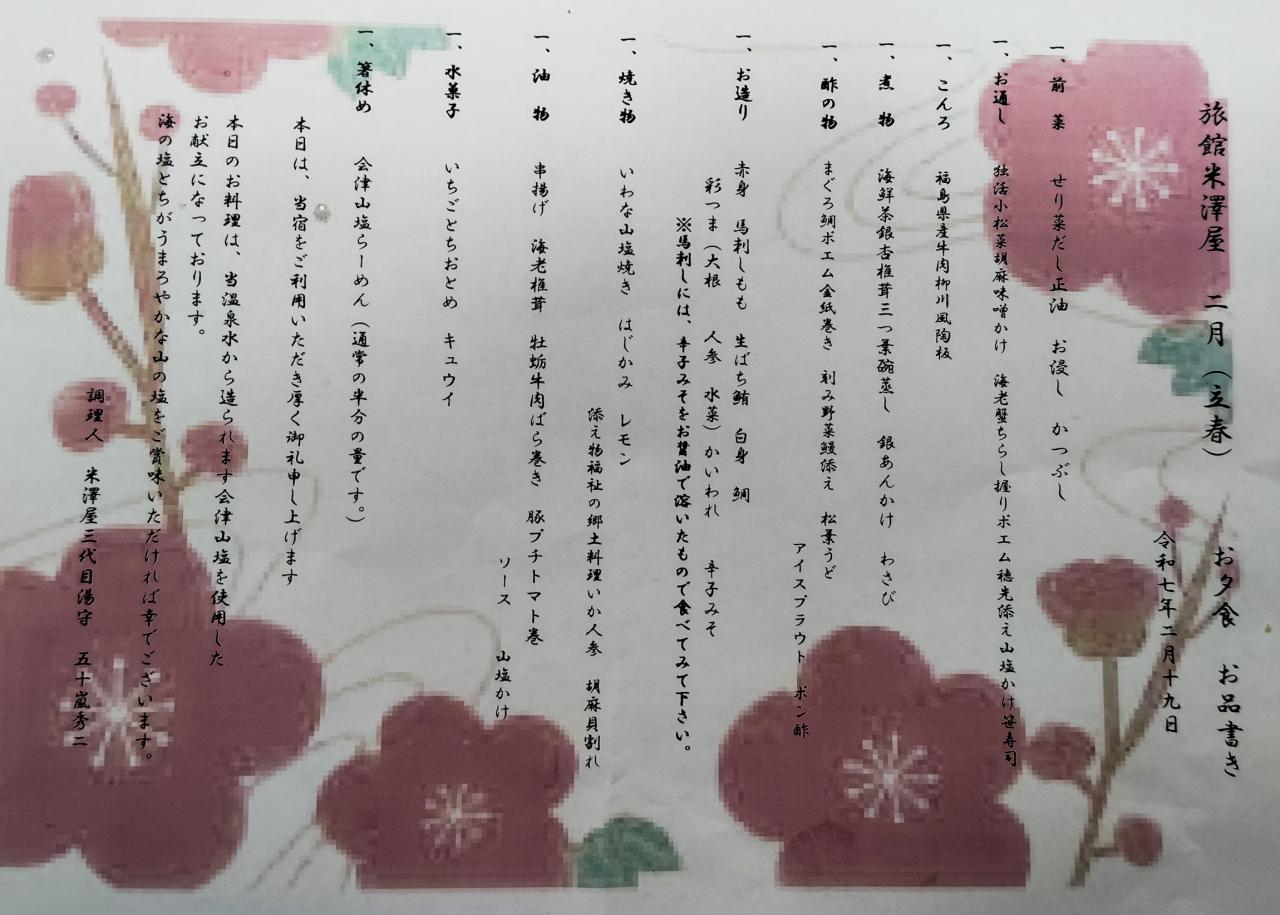 旅館米澤屋 二月(立春) お夕食 お品書き
令和七年二月十九日
一、前菜 せり菜だし正油 お浸し かつぶし
一、お通し 独活小松菜胡麻味噌かけ 海老蟹ちらし握りポエム穂先添え山塩かけ笹寿司
一、こんろ 福島県産牛肉柳川風陶板
一、煮物 海鮮茶銀杏椎茸三つ葉碗蒸し 銀あんかけ わさび
一、酢の物 まぐろ鯛ポエム金紙巻き 刻み野菜鰻添え 松葉うど
アイスプラウト ポン酢
一、お造り 赤身 馬刺しもも 生ばち鮪 白身 鯛
彩つま(大根 人参 水菜)かいわれ 辛子みそ
※馬刺しには、辛子みそをお醤油で溶いたもので食べてみて下さい。
一、焼き物 いわな山塩焼き はじかみ レモン
添え物福祉の郷土料理いか人参 胡麻貝割れ
一、油物 串揚げ 海老椎茸 牡蛎牛肉ばら巻き 豚プチトマト巻
ソース 山塩かけ
一、水菓子 いちごとちおとめ キュウイ
一、箸休め 会津山塩らーめん(通常の半分の量です。)
本日は、当宿をご利用いただき厚く御礼申し上げます
本日のお料理は、当温泉水から造られます会津山塩を使用した
お献立になっております。
海の塩とちがうまろやかな山の塩をご賞味いただければ幸でございます。
調理人 米澤屋三代目湯守 五十嵐秀二